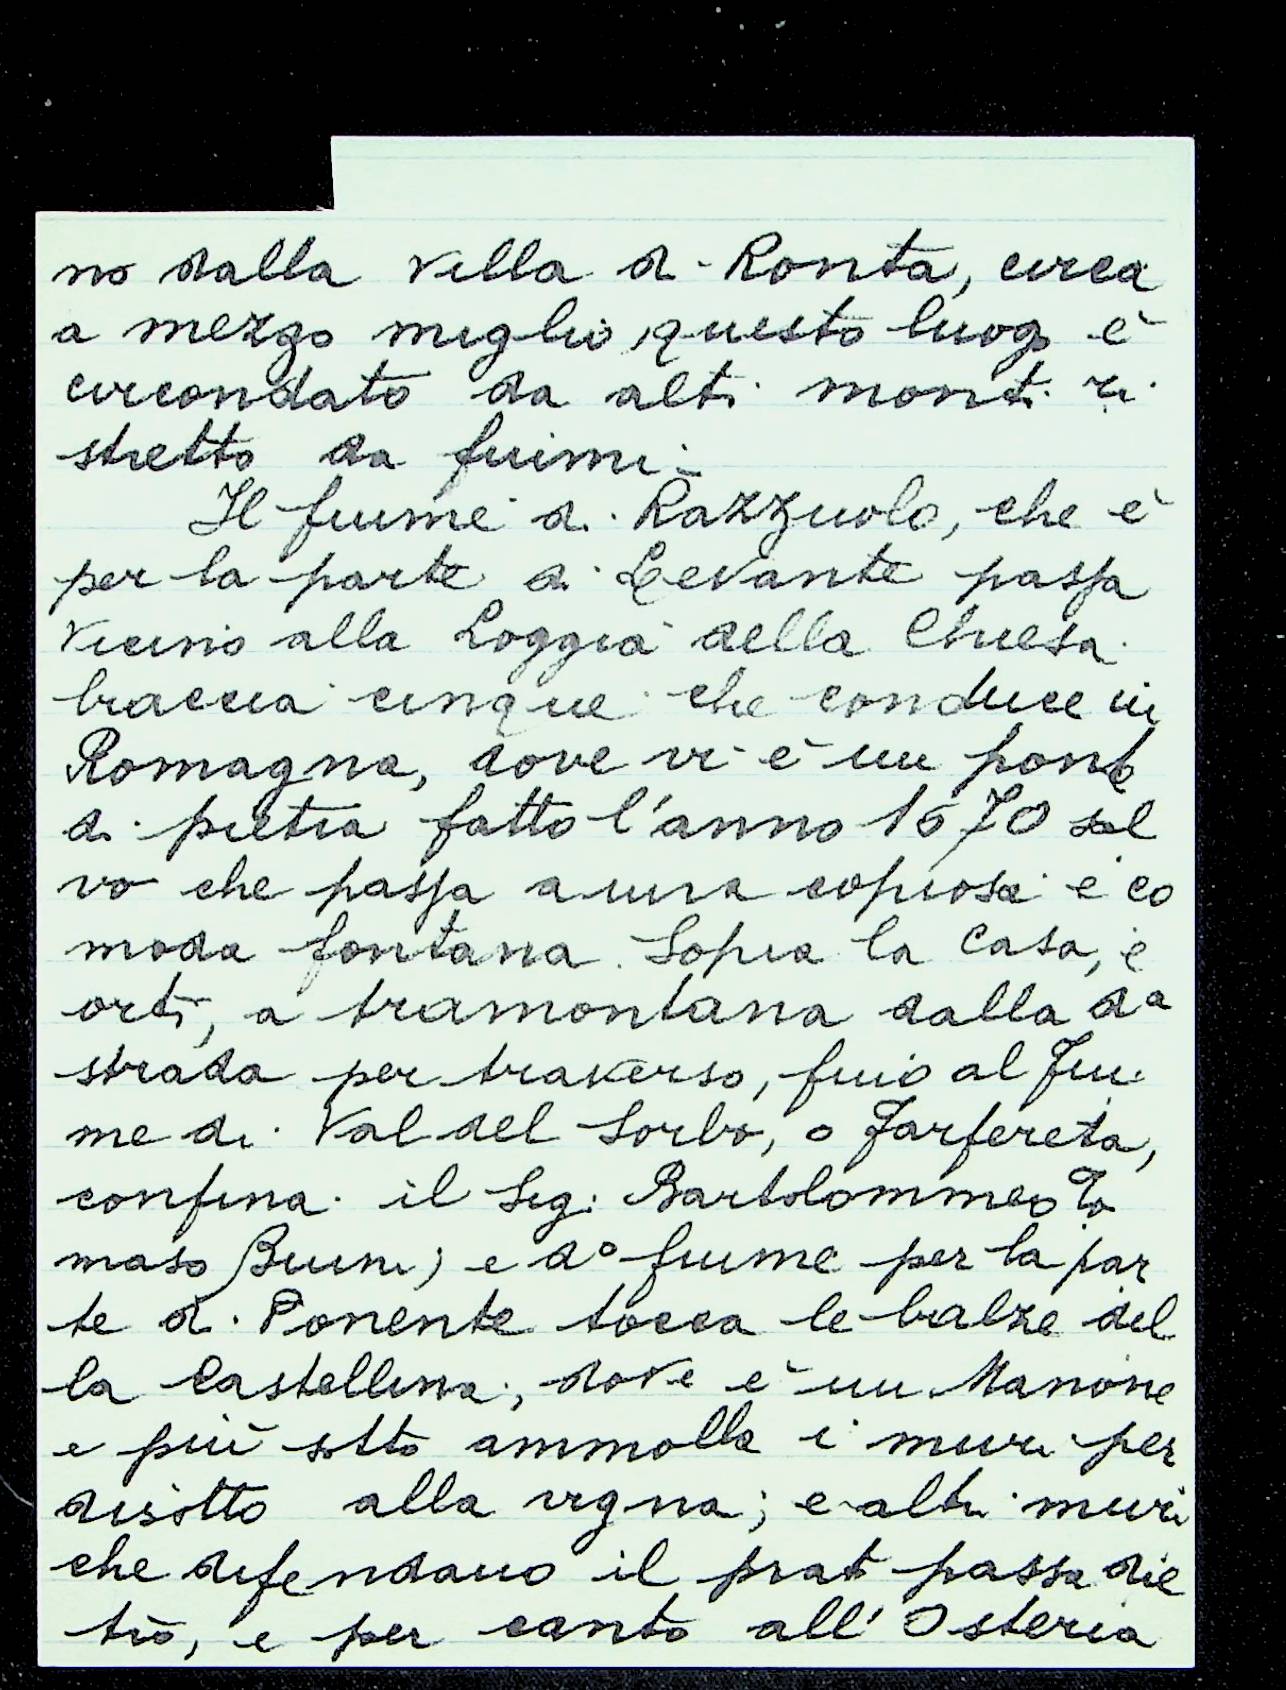 no dalla Villa di Ronta, circa
a mezzo miglio, questo luogo è
circondato da alti monti ri
stretto da fiumi.
Il fiume di Razzuolo, che è
per la parte di Levante passa
vicino alla Loggia della Chiesa
braccia cinque che conduce in
Romagna, dove vi è un ponte
di pietra fatto l'anno 1670 sol
vo che passa a una copiosa e co
moda fontana. Sopra la Casa, e
orti, a tramontana dalla dª
strada per traverso, fino al Fiu
me di Val del Sorbo, o Farfereta,
confina il Sig: Bartolommeo To
maso Buini; e d° fiume per la par
te di Ponente tocca le balze del
la Castellina, dove è un Manone
e più sotto ammolla i muri per
disotto alla vigna; e altri muri
che difendano il prato passa die
tro, e per canto all'Osteria